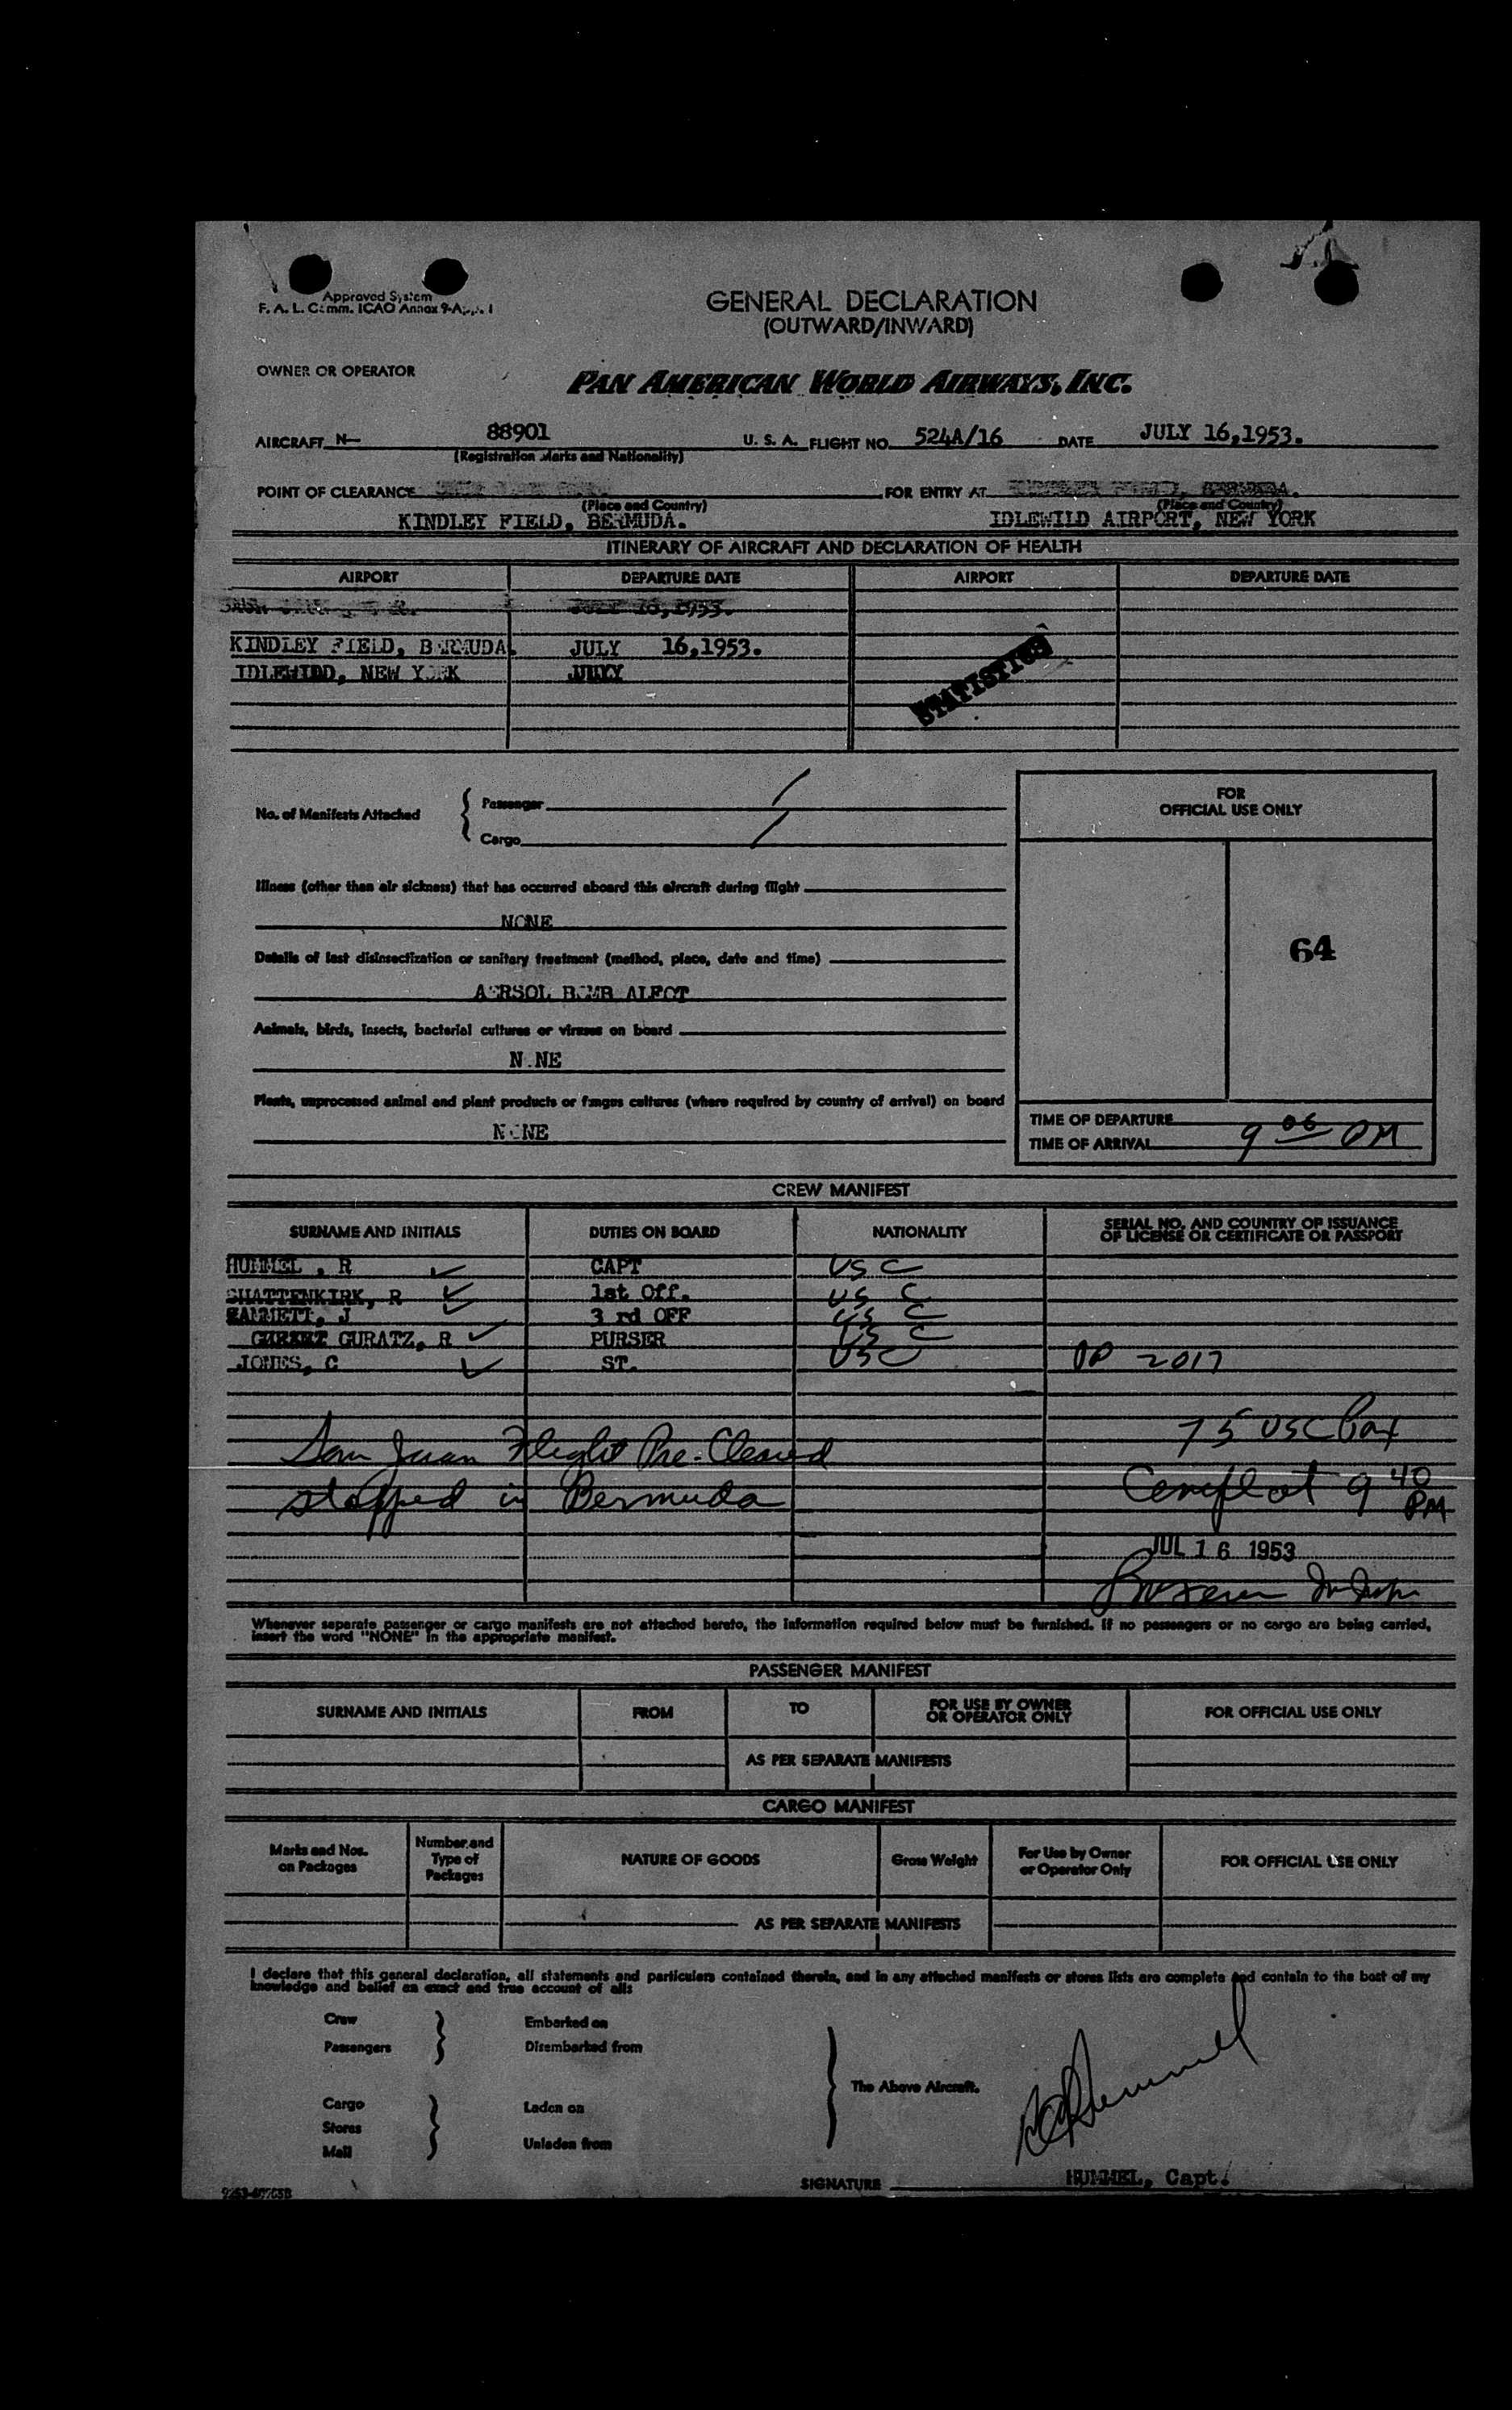 Approved System
F. A. L. Comm. ICAO Annex 9-App. 1
GENERAL DECLARATION
(OUTWARD/INWARD)
OWNER OR OPERATOR
PAN AMERICAN WORLD AIRWAYS, INC.
AIRCRAFT N- 88901 U. S. A. FLIGHT NO. 524A/16 DATE JULY 16,1953.
(Registration Marks and Nationality)
POINT OF CLEARANCE FOR ENTRY AT
(Place and Country) (Place and Country)
KINDLEY FIELD, BERMUDA. IDLEWILD AIRPORT, NEW YORK
ITINERARY OF AIRCRAFT AND DECLARATION OF HEALTH
AIRPORT DEPARTURE DATE AIRPORT DEPARTURE DATE
JULY 16,1953.
KINDLEY FIELD, BERMUDA. JULY 16,1953.
IDLEWIDD, NEW YORK
STATISTICS
No. of Manifests Attached { Passenger /
Cargo /
FOR
OFFICIAL USE ONLY
Illness (other than air sickness) that has occurred aboard this aircraft during flight
NONE
64
Details of last disinsectization or sanitary treatment (method, place, date and time)
AERSOL BOMB ALFOT
Animals, birds, insects, bacterial cultures or viruses on board
NONE
Plants, unprocessed animal and plant products or fungus cultures (where required by country of arrival) on board
NONE
TIME OF DEPARTURE
TIME OF ARRIVAL 9 06 PM
CREW MANIFEST
SURNAME AND INITIALS DUTIES ON BOARD NATIONALITY SERIAL NO. AND COUNTRY OF ISSUANCE
OF LICENSE OR CERTIFICATE OR PASSPORT
HUMMEL , R CAPT USC
SHATTENKIRK, R 1st Off. US C
J 3 rd OFF US C
GURATZ, R PURSER US C
JONES, C ST. USC 2017
75 USC Pax
San Juan Flight Pre-Cleared
stopped in Bermuda
9 40 PM
JUL 16 1953
Whenever separate passenger or cargo manifests are not attached hereto, the information required below must be furnished. If no passengers or no cargo are being carried,
insert the word "NONE" in the appropriate manifest.
PASSENGER MANIFEST
SURNAME AND INITIALS FROM TO FOR USE BY OWNER
OR OPERATOR ONLY FOR OFFICIAL USE ONLY
AS PER SEPARATE MANIFESTS
CARGO MANIFEST
Marks and Nos.
on Packages Number and
Type of
Packages NATURE OF GOODS Gross Weight For Use by Owner
or Operator Only FOR OFFICIAL USE ONLY
AS PER SEPARATE MANIFESTS
I declare that this general declaration, all statements and particulars contained therein, and in any attached manifests or stores lists are complete and contain to the best of my
knowledge and belief an exact and true account of all:
Crew } Embarked on
Passengers Disembarked from
The Above Aircraft.
Cargo Laden on
Stores
Mail Unladen from
SIGNATURE HUMMEL, Capt.